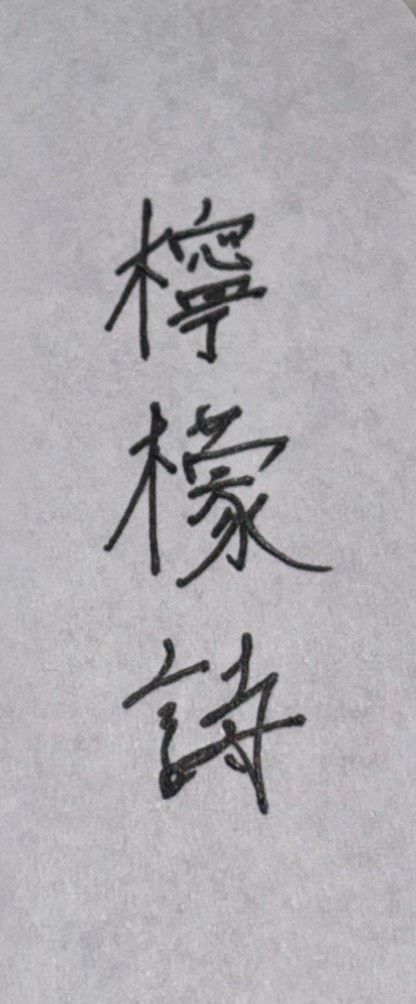 檸檬詩